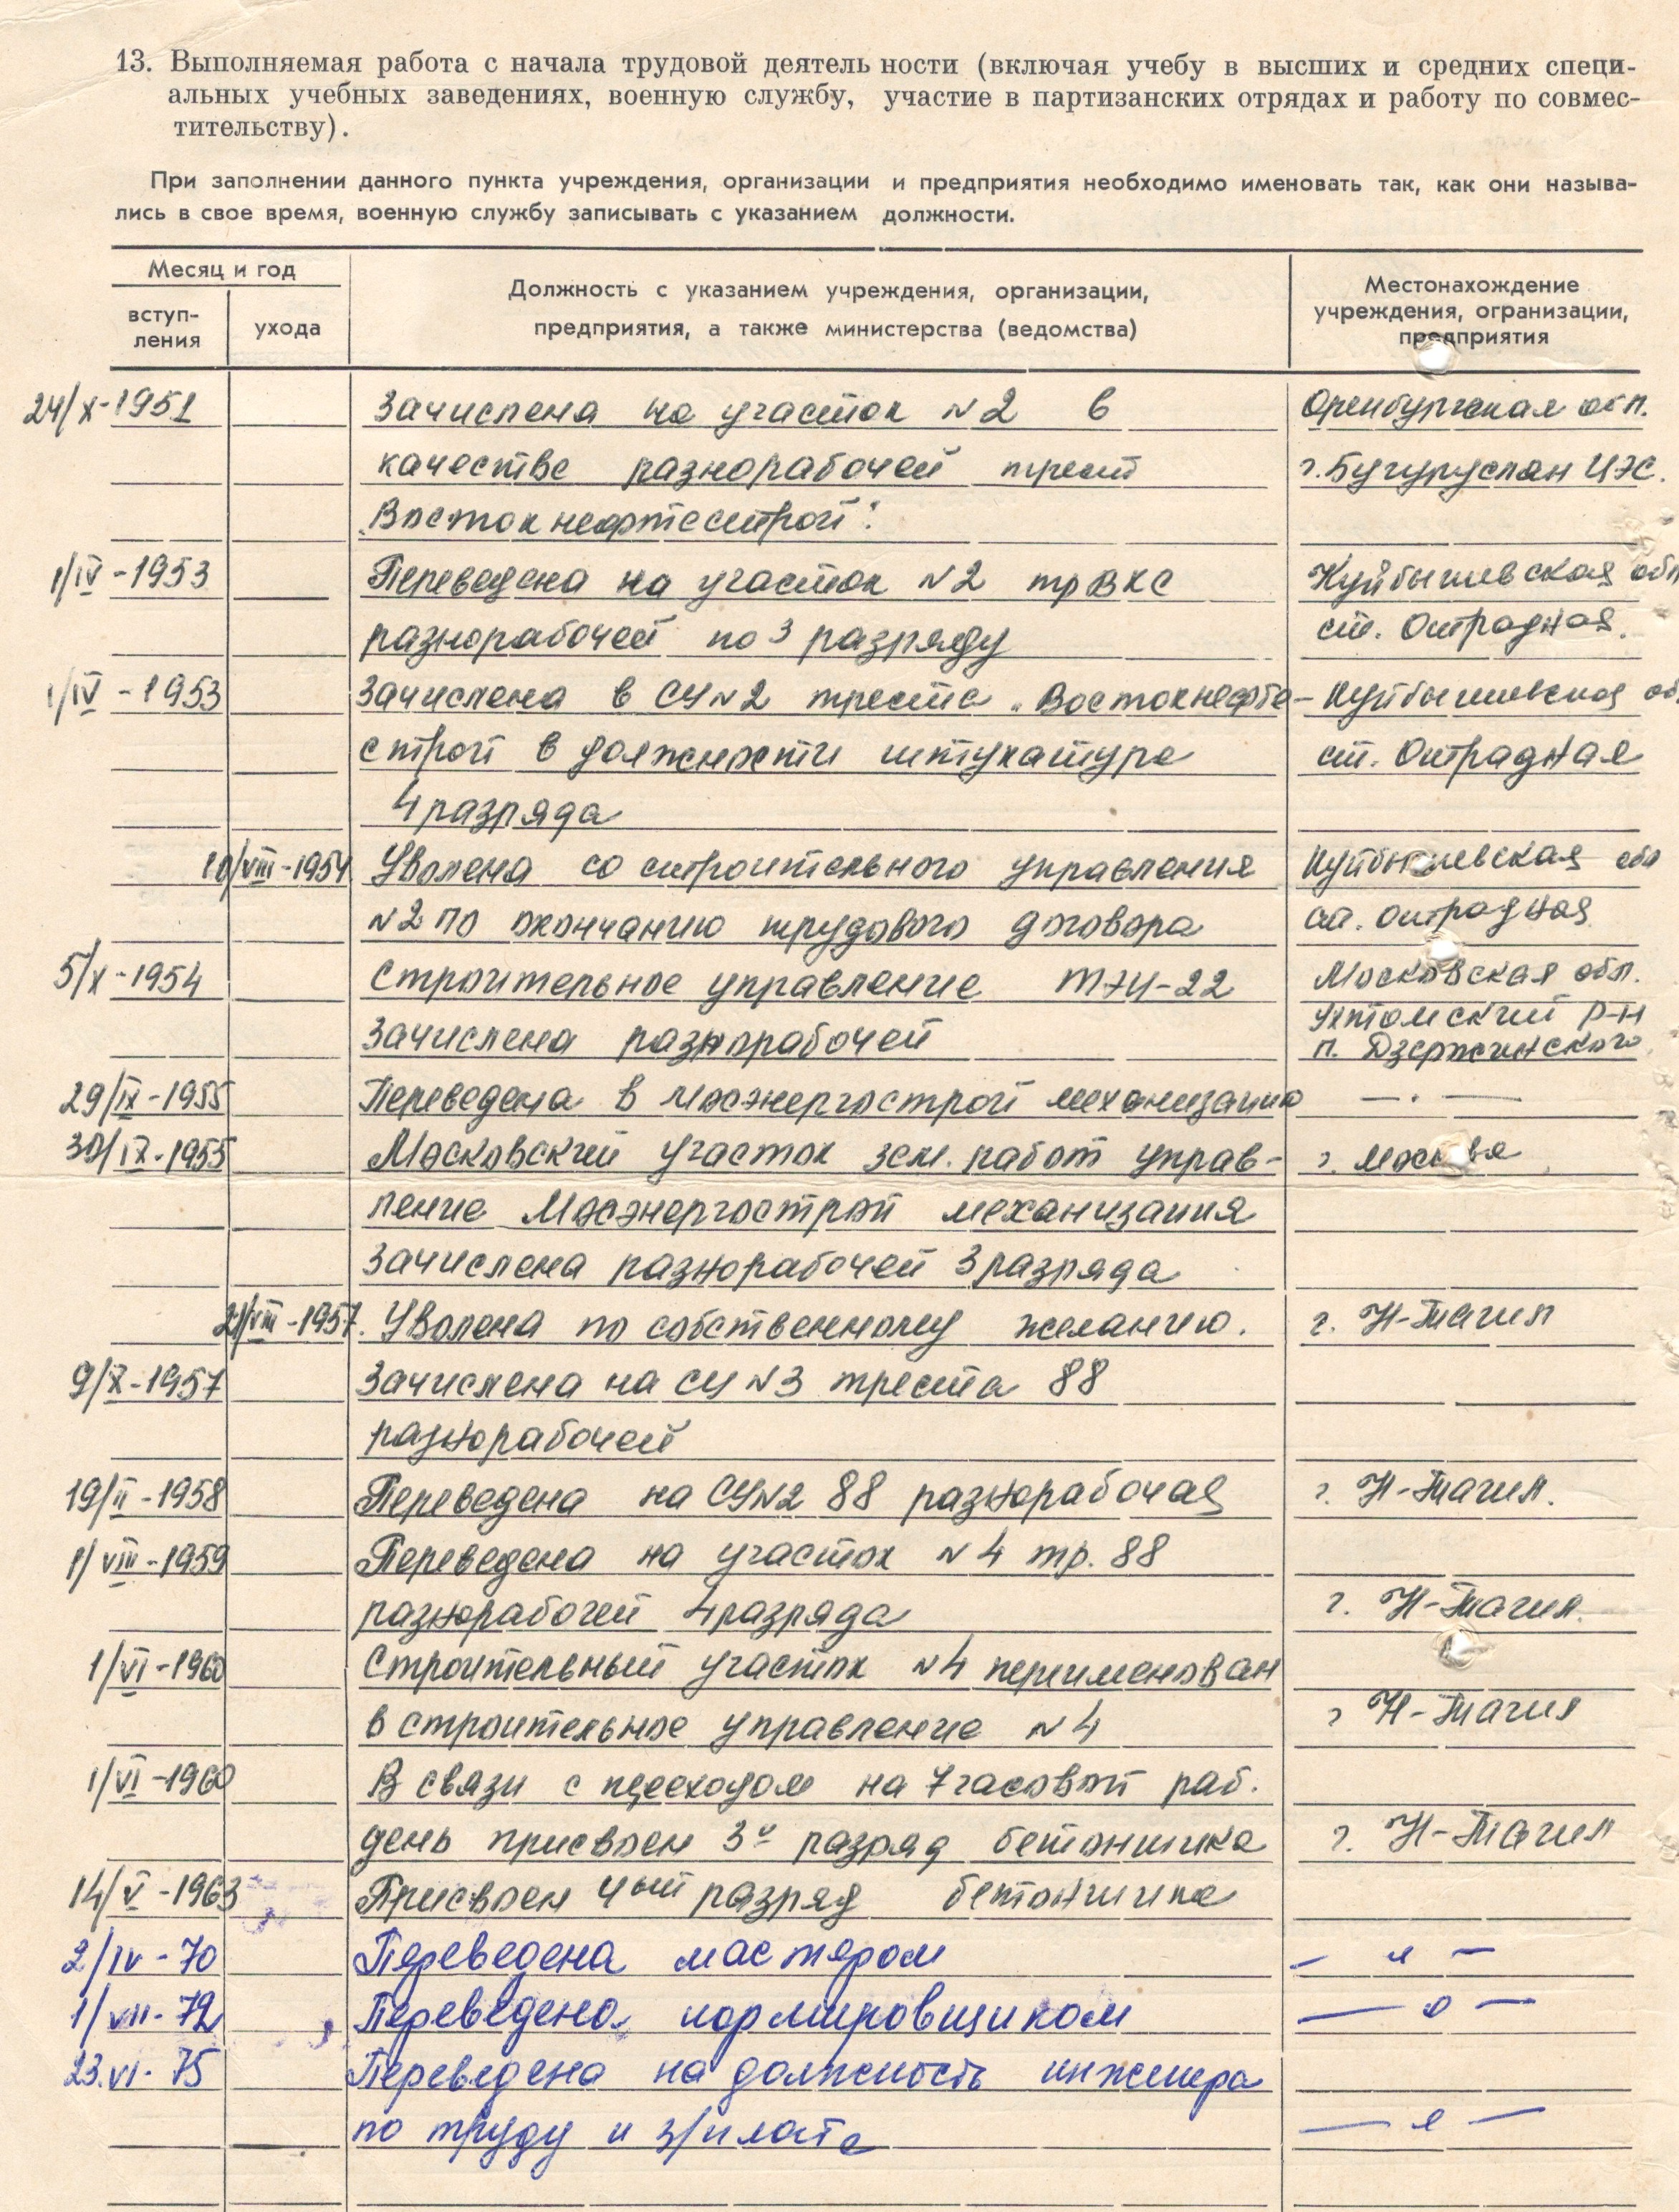 13. Выполняемая работа с начала трудовой деятель ности (включая учебу в высших и средних специ-
альных учебных заведениях, военную службу, участие в партизанских отрядах и работу по совмес-
тительству).
При заполнении данного пункта учреждения, организации и предприятия необходимо именовать так, как они называ-
лись в свое время, военную службу записывать с указанием должности.
Месяц и год
вступ-
ления
ухода
Должность с указанием учреждения, организации,
предприятия, а также министерства (ведомства)
Местонахождение
учреждения, огранизации,
предприятия
24/X-1951 Зачислена на участок №2 в Оренбургская обл.
качестве разнорабочей трест г. Бугуруслан ЦЭС.
"Востокнефтестрой".
1/IV-1953 Переведена на участок №2 тр ВКС Куйбышевская обл
разнорабочей по 3 разряду ст. Отрадная.
1/IV-1953 Зачислена в СУ№2 треста "Востокнефте- Куйбышевская об.
строй в должности штукатура ст. Отрадная
4 разряда
10/VIII-1954 Уволена со строительного управления Куйбышевская обл
№2 по окончанию трудового договора ст. Отрадная
5/X-1954 Строительное управление ТЭЦ-22 Московская обл.
Зачислена разнорабочей Ухтомский р-н
п. Дзержинского
29/IX-1955 Переведена в Мосэнергострой механизацию — . —
30/IX-1955 Московский участок зем. работ управ- г. Москва
ление Мосэнергострой механизация
Зачислена разнорабочей 3 разряда
21/VIII-1957. Уволена по собственному желанию. г. Н-Тагил
9/X-1957 Зачислена на СУ №3 треста 88
разнорабочей
19/II-1958 Переведена на СУ№2 88 разнорабочая г. Н-Тагил.
1/VIII-1959 Переведена на участок №4 тр. 88
разнорабочей 4 разряда г. Н-Тагил.
1/VI-1960 Строительный участок №4 переименован
в строительное управление №4 г Н-Тагил
1/VI-1960 В связи с переходом на 7 часовой раб.
день присвоен 3й разряд бетонщика г. Н-Тагил
14/V-1963 Присвоен 4ый разряд бетонщика
2/IV-70 Переведена мастером — " —
1/VII-72 Переведена нормировщиком — " —
23.VI-75 Переведена на должность инженера
по труду и з/плате — " —